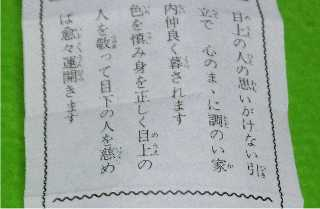 目上の人の思いがけない引
立で 心のまゝに調のい家
内仲良く暮されます
色を慎み身を正しく目上の
人を敬って目下の人を慈め
ば愈々運開きます